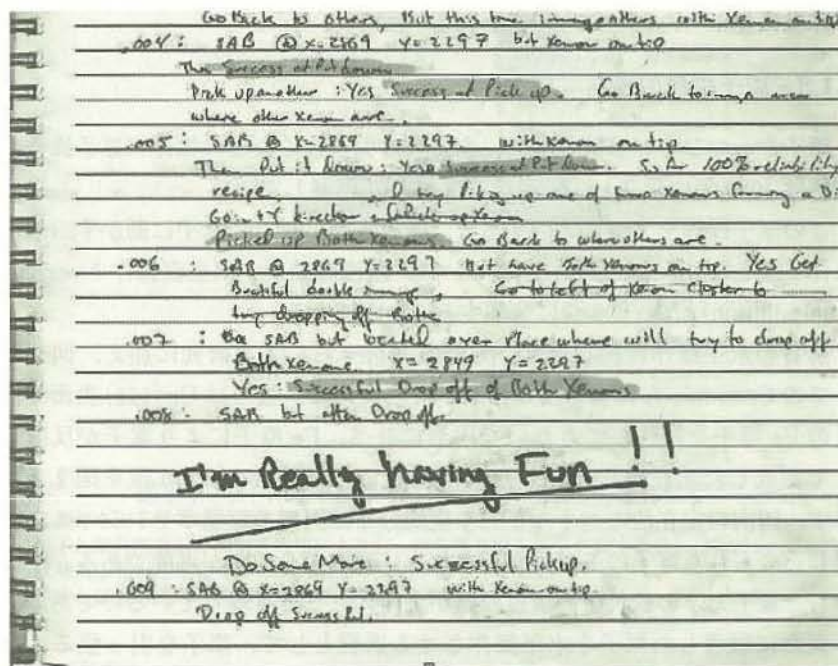 Go Back to others, But this time image others with Xenon on tip
.004 : SAB @ X=2869 Y=2297 but Xenon on tip
Then Success at Put down
Pick up another : Yes Success at Pick up. Go Back to image area
where other Xenon are.
.005 : SAB @ X=2869 Y=2297. with Xenon on tip
Then Put it down: Yes Success at Put Down. So far 100% reliability
recipe, try Picking up one of two Xenons forming a Di
Go in +Y direction
Picked up Both Xenons. Go Back to where others are.
.006 : SAB @ 2869 Y=2297 But have Both Xenons on tip. Yes Get
Beautiful double image, Go to Left of Xenon Cluster to
try dropping off Both
.007 : SAB but located over Place where will try to drop off
Both Xenons. X=2849 Y=2297
Yes: Successful Drop off of Both Xenons
.008: SAB but after Drop off.
I'm Really having Fun !!
Do Some More : Successful Pickup.
.009 : SAB @ X=2869 Y=2297 with Xenon on tip.
Drop off Successful.